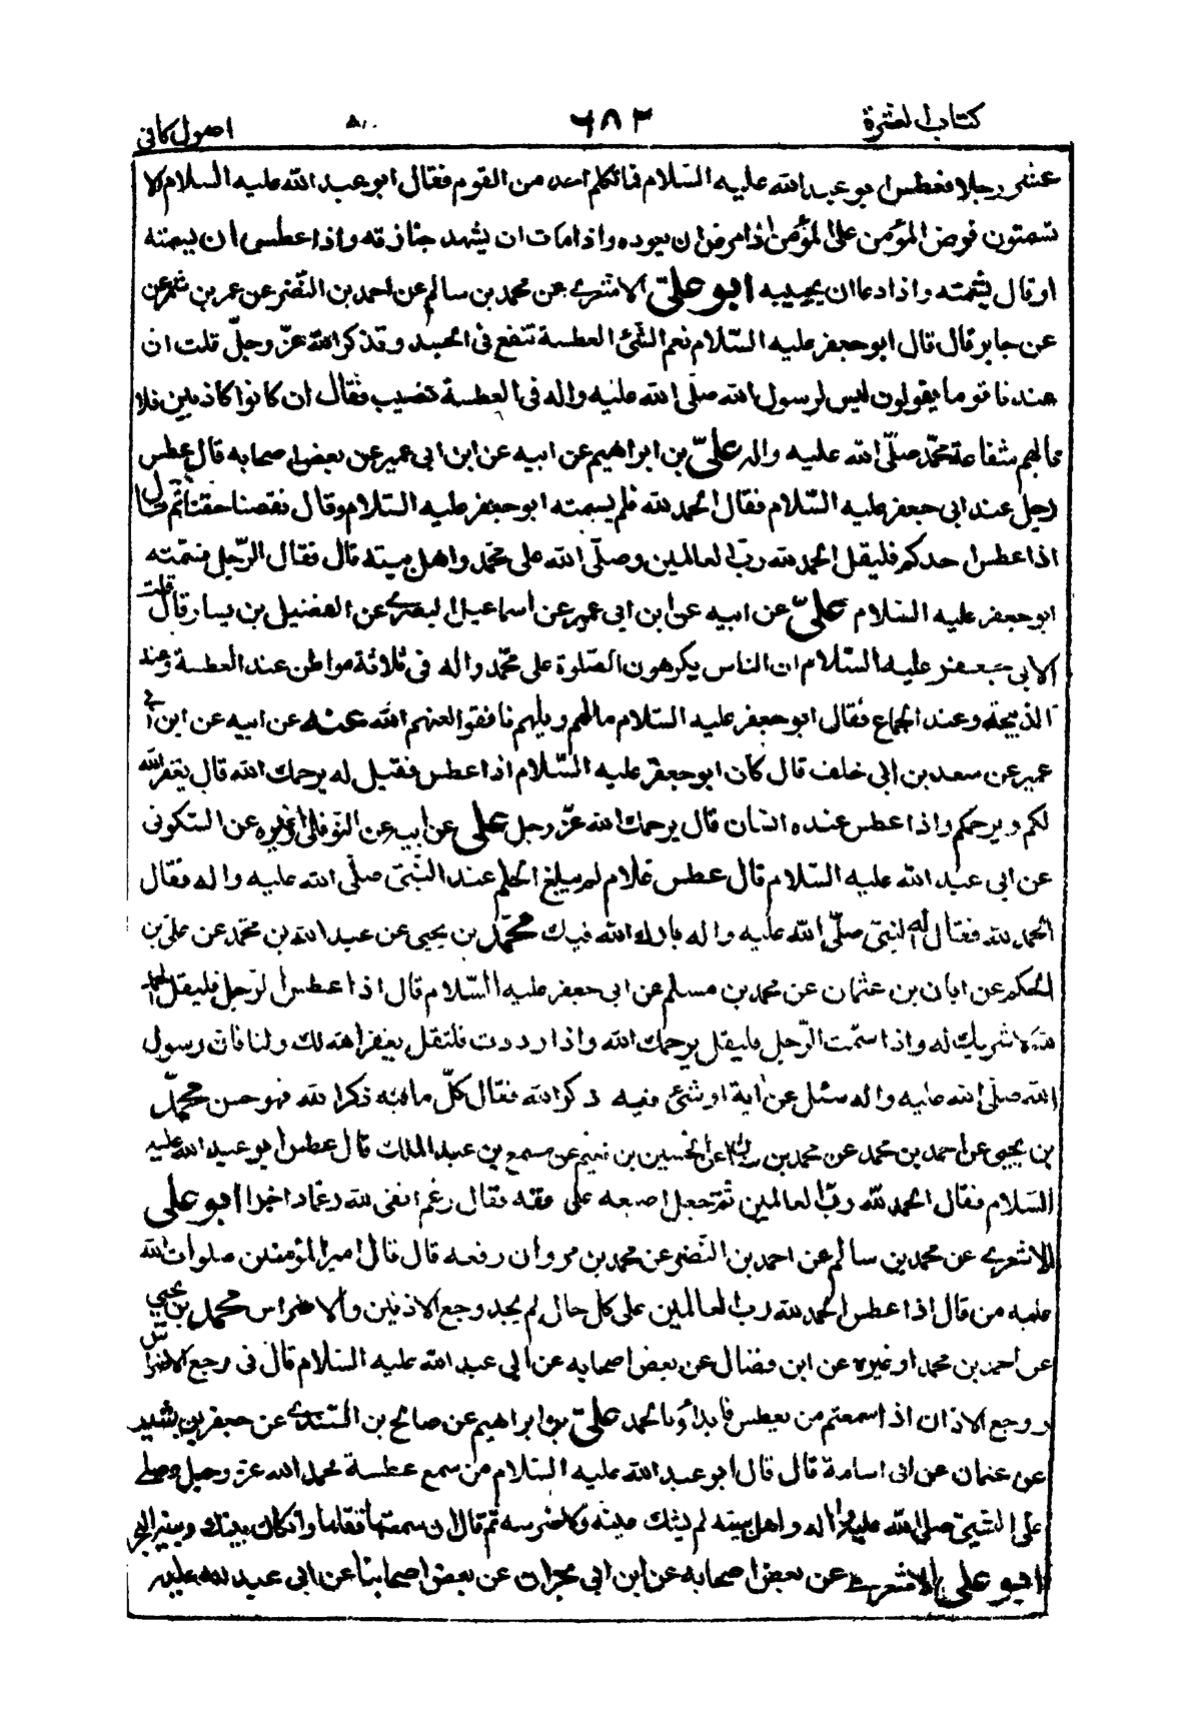 كتاب العشرة ٦٨٢ اصول كافى
عشر رجلا فعطس ابو عبد الله عليه السّلام فما تكلم احد من القوم فقال ابو عبد الله عليه السلام الا
تسمتون فرض المؤمن على المؤمن اذا مرض ان يعوده واذا مات ان يشهد جنازته واذا عطس ان يسمته
او قال يشمته واذا دعا ان يجيبه ابو علىّ الاشعرى عن محمد بن سالم عن احمد بن النّضر عن عمر بن شمر عن
عن جابر قال قال ابو جعفر عليه السّلام نعم الشّئ العطسة تنفع فى الجسد وتذكر الله عزّ وجلّ قلت ان
عندنا قوما يقولون ليس لرسول الله صلّى الله عليه واله فى العطسة نصيب فقال ان كانوا كاذبين فلا
نالهم شفاعة محمّد صلّى الله عليه واله علىّ بن ابراهيم عن ابيه عن ابن ابى عمير عن بعض اصحابه قال عطس
رجل عند ابى جعفر عليه السّلام فقال الحمد لله فلم يسمته ابو جعفر عليه السّلام وقال نقصنا حقنا ثم قال
اذا عطس احدكم فليقل الحمد لله ربّ العالمين وصلّى الله على محمّد واهل بيته قال فقال الرّجل فسمّته
ابو جعفر عليه السّلام علىّ عن ابيه عن ابن ابى عمير عن اسماعيل البصرى عن الفضيل بن يسار قال قلت
لابى جعفر عليه السّلام ان الناس يكرهون الصّلوة على محمّد واله فى ثلاثة مواطن عند العطسة وعند
الذبيحة وعند الجماع فقال ابو جعفر عليه السّلام مالهم ويلهم نافقوا لعنهم الله عنه عن ابيه عن ابن ابى
عمير عن سعد بن ابى خلف قال كان ابو جعفر عليه السّلام اذا عطس فقيل له يرحمك الله قال يغفر الله
لكم ويرحمكم واذا عطس عنده انسان قال يرحمك الله عزّ وجل على عن ابيه عن النّوفلى او غيره عن السّكونى
عن ابى عبد الله عليه السّلام قال عطس غلام لم يبلغ الحلم عند النّبىّ صلّى الله عليه واله فقال
الحمد لله فقال له النبىّ صلّى الله عليه واله بارك الله فيك محمّد بن يحيى عن عبد الله بن محمّد عن علىّ بن
الحكم عن ابان بن عثمان عن محمد بن مسلم عن ابى جعفر عليه السّلام قال اذا عطس الرّجل فليقل الحمد
لله لا شريك له واذا سمّت الرّجل فليقل يرحمك الله واذا رددت فلتقل يغفر الله لك ولنا فان رسول
الله صلّى الله عليه واله سئل عن اية او شئ فيه ذكر الله فقال كلّ ما فيه ذكر الله فهو حسن محمّد
بن يحيى عن احمد بن محمد عن محمد بن عن الحسين بن نعيم عن مسمع بن عبد الملك قال عطس ابو عبد الله عليه
السّلام فقال الحمد لله ربّ العالمين ثمّ جعل اصبعه على انفه فقال رغم انفى لله رغما داخرا ابو على
الاشعرى عن محمد بن سالم عن احمد بن النّضر عن محمد بن مروان رفعه قال قال امير المؤمنين صلوات الله
عليه من قال اذا عطس الحمد لله ربّ العالمين على كل حال لم يجد وجع الاذنين والاضراس محمد بن يحيى
عن احمد بن محمد او غيره عن ابن فضال عن بعض اصحابه عن ابى عبد الله عليه السّلام قال فى وجع الاضراس
ووجع الاذان اذا سمعتم من يعطس فابداوه بالحمد علىّ بن ابراهيم عن صالح بن السّندى عن جعفر بن بشير
عن عثمان عن ابى اسامة قال قال ابو عبد الله عليه السّلام من سمع عطسة فحمد الله عزّ وجل وصلى
على النّبىّ صلى الله عليه واله واهل بيته لم يشتك عينه ولا ضرسه ثم قال ان سمعتها فقلها وان كان بينك وبينه البحر
ابو على الاشعرى عن بعض اصحابه عن ابن ابى نجران عن بعض اصحابنا عن ابى عبد الله عليه